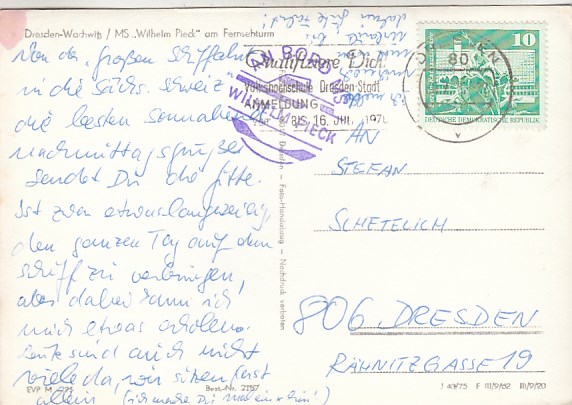 Dresden-Wachwitz / MS „Wilhelm Pieck" am Fernsehturm
Von der „großen Schiffahrt"
in die Sächs. Schweiz
die besten Sonnabend
nachmittagsgrüße
sendet Dir die Gitte.
Ist zwar etwas langweilig,
den ganzen Tag auf dem
Schiff zu verbringen,
aber dabei kann ich
mich etwas erholen.
Leute sind auch nicht
viele da, wir sitzen fast
allein
EVP M
Best.-Nr. 2157
AN BORD
WILHELM PIECK
Qualifiziere Dich!
Volkshochschule Dresden-Stadt
ANMELDUNG
BIS 16. JULI 197
80
10
DEUTSCHE DEMOKRATISCHE REPUBLIK
Dresden – Foto-Handabzug – Nachdruck verboten
AN
STEFAN
SCHETELICH
806 DRESDEN
RÄHNITZGASSE 19
J 40/75 F III/9/82 III/9/20